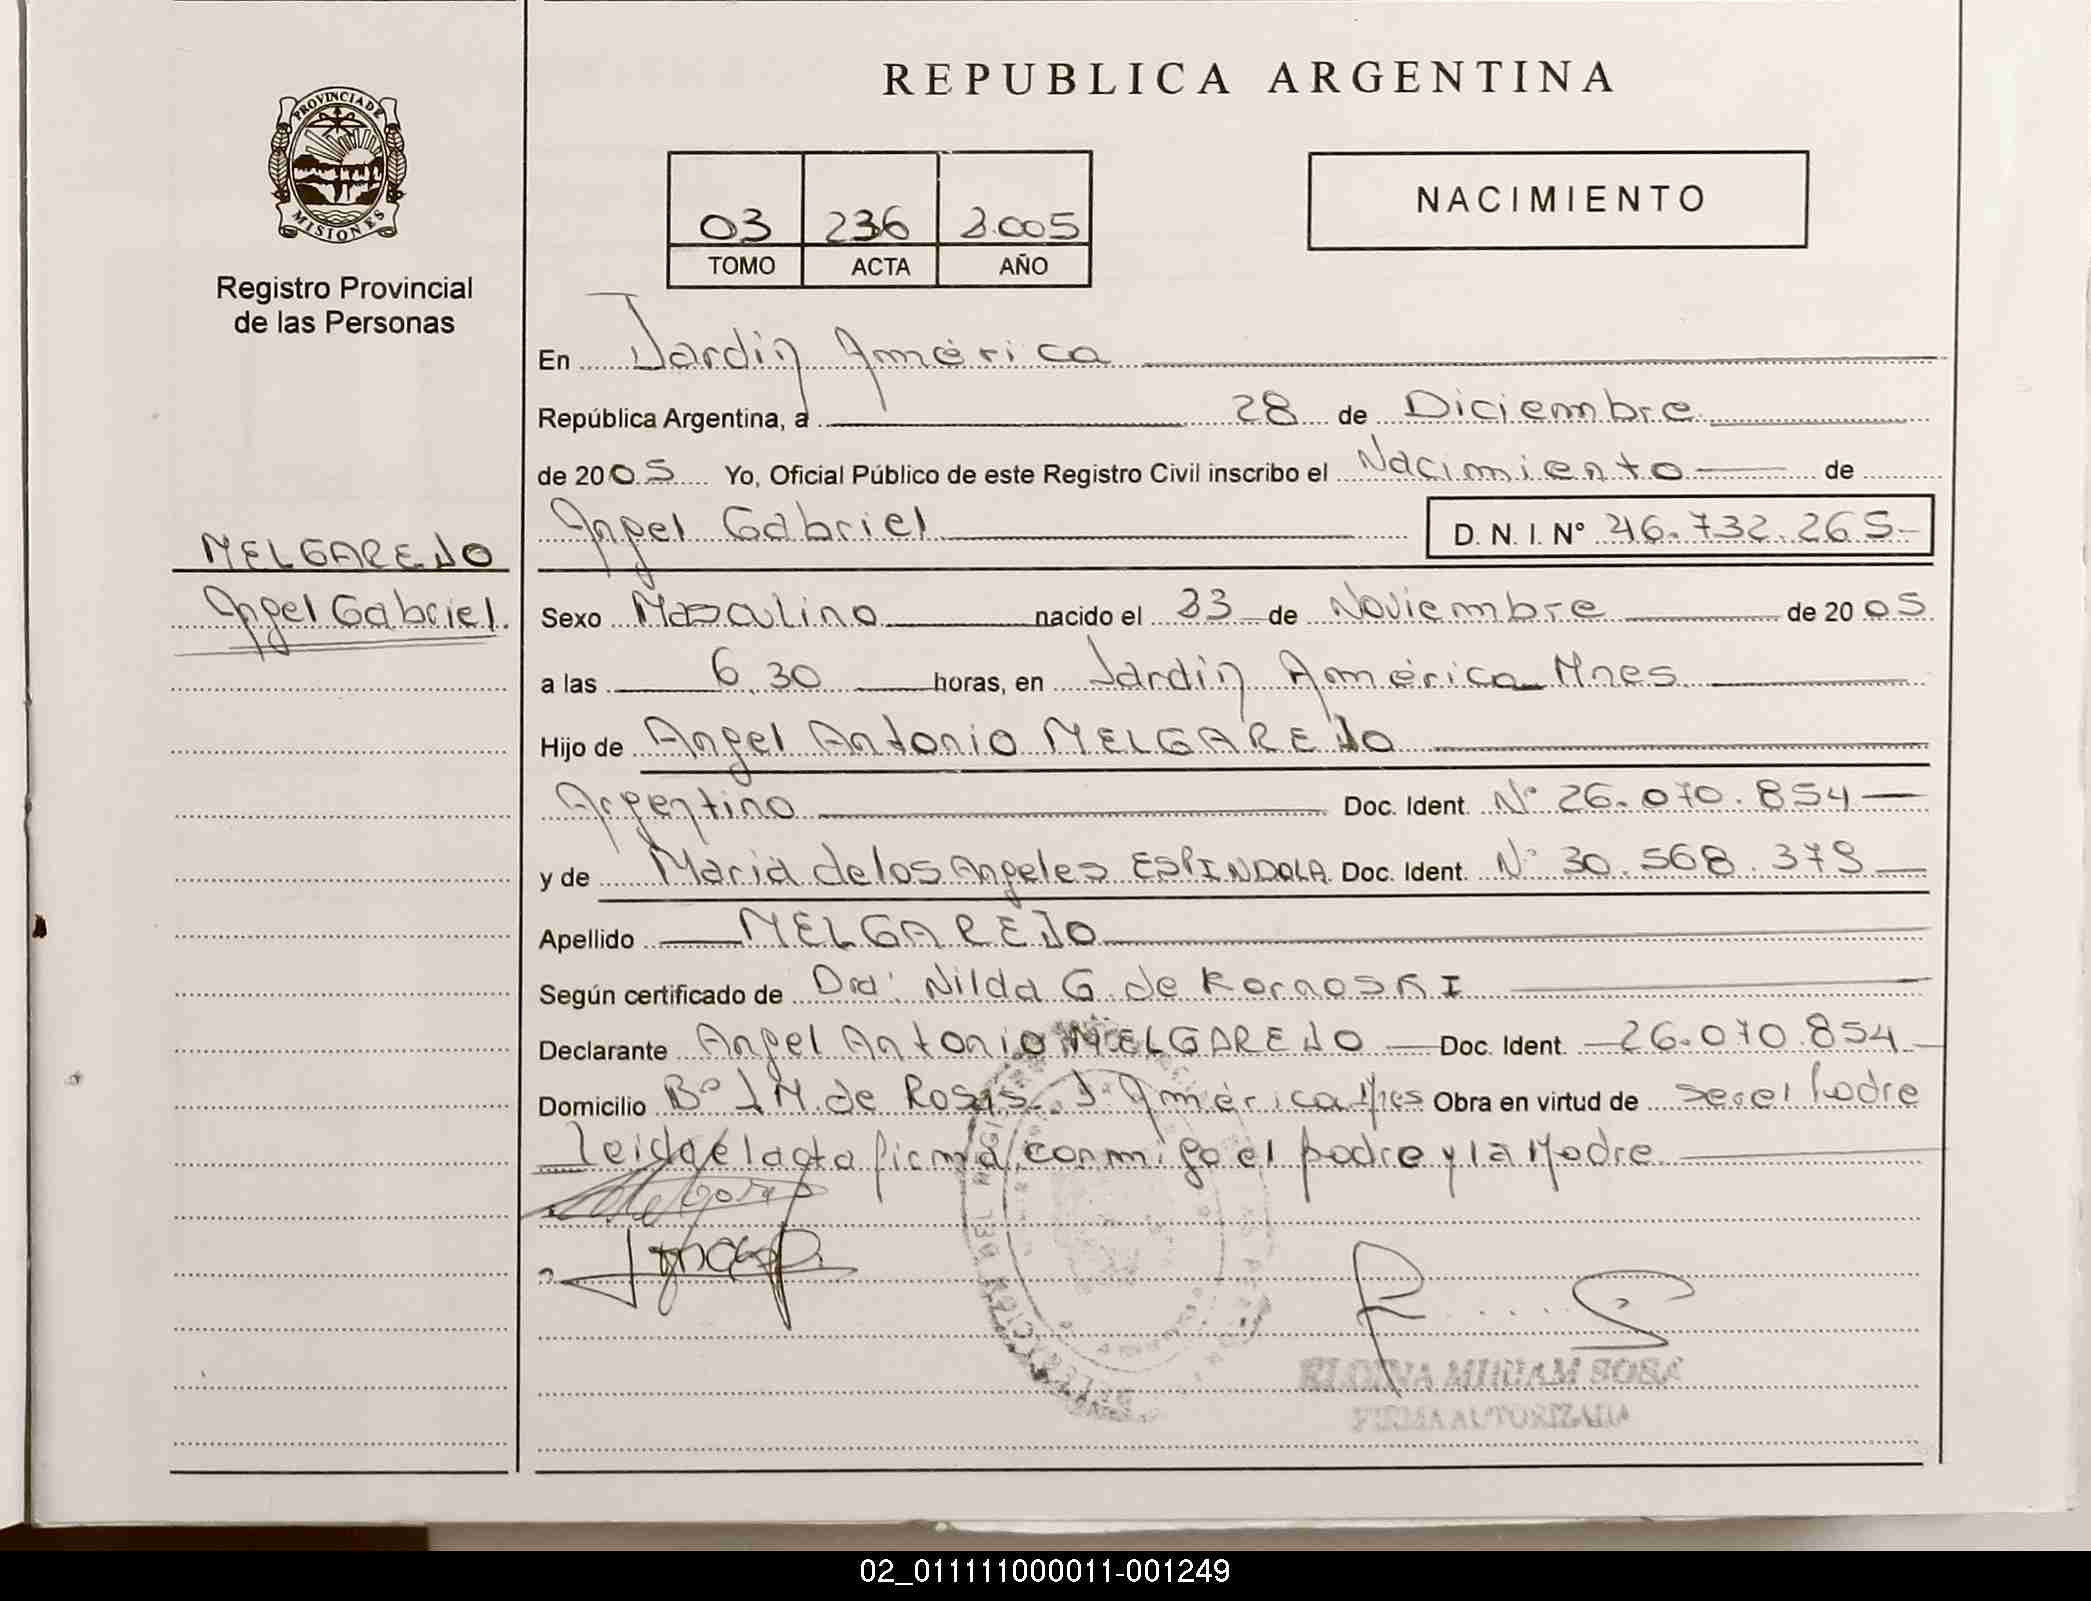 REPUBLICA ARGENTINA
PROVINCIA DE
MISIONES
Registro Provincial
de las Personas
NACIMIENTO
03 236 2.005
TOMO ACTA AÑO
En Jardín América
República Argentina, a 28 de Diciembre
de 2005 Yo, Oficial Público de este Registro Civil inscribo el Nacimiento de
Angel Gabriel D. N. I. N° 46.732.265-
MELGAREJO
Angel Gabriel.
Sexo Masculino nacido el 23 de Noviembre de 2005
a las 6,30 horas, en Jardín América Mnes
Hijo de Angel Antonio MELGAREJO
Argentino Doc. Ident. N° 26.070.854
y de Maria de los Angeles ESPINDOLA Doc. Ident. N° 30.568.379
Apellido MELGAREJO
Según certificado de Dra: Nilda G. de KornosKI
Declarante Angel Antonio MELGAREJO Doc. Ident. 26.070.854
Domicilio B° J M. de Rosas. J° América Mnes Obra en virtud de ser el Padre
Leida el acta firma conmigo el padre y la Madre
MIRIAM SOSA
FIRMA AUTORIZADA
02_011111000011-001249